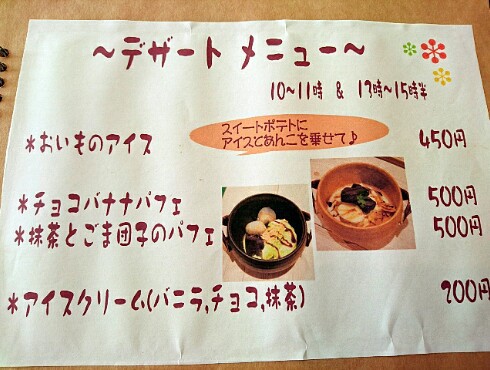 ～デザート メニュー～
10～11時 & 13時～15時半
スイートポテトに
アイスとあんこを乗せて♪
*おいものアイス 450円
*チョコバナナパフェ 500円
*抹茶とごま団子のパフェ 500円
*アイスクリーム(バニラ,チョコ,抹茶) 200円